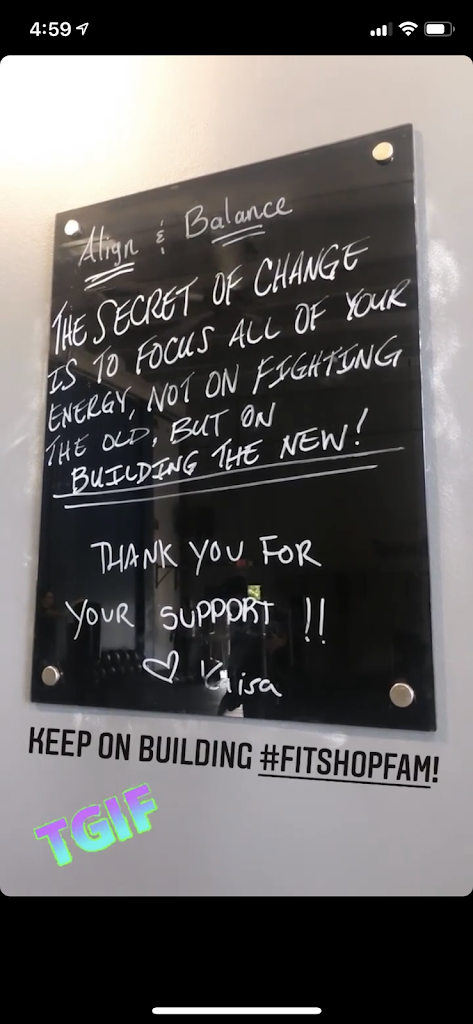 4:59
Align & Balance
THE SECRET OF CHANGE
IS TO FOCUS ALL OF YOUR
ENERGY, NOT ON FIGHTING
THE OLD, BUT ON
BUILDING THE NEW!
THANK YOU FOR
YOUR SUPPORT !!
KEEP ON BUILDING #FITSHOPFAM!
TGIF